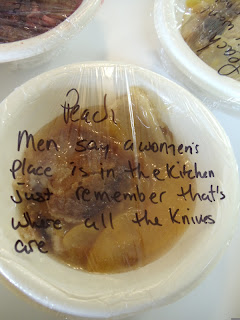 Peach
Men say a women's
Place is in the Kitchen
Just remember that's
where all the Knives
are
Peach